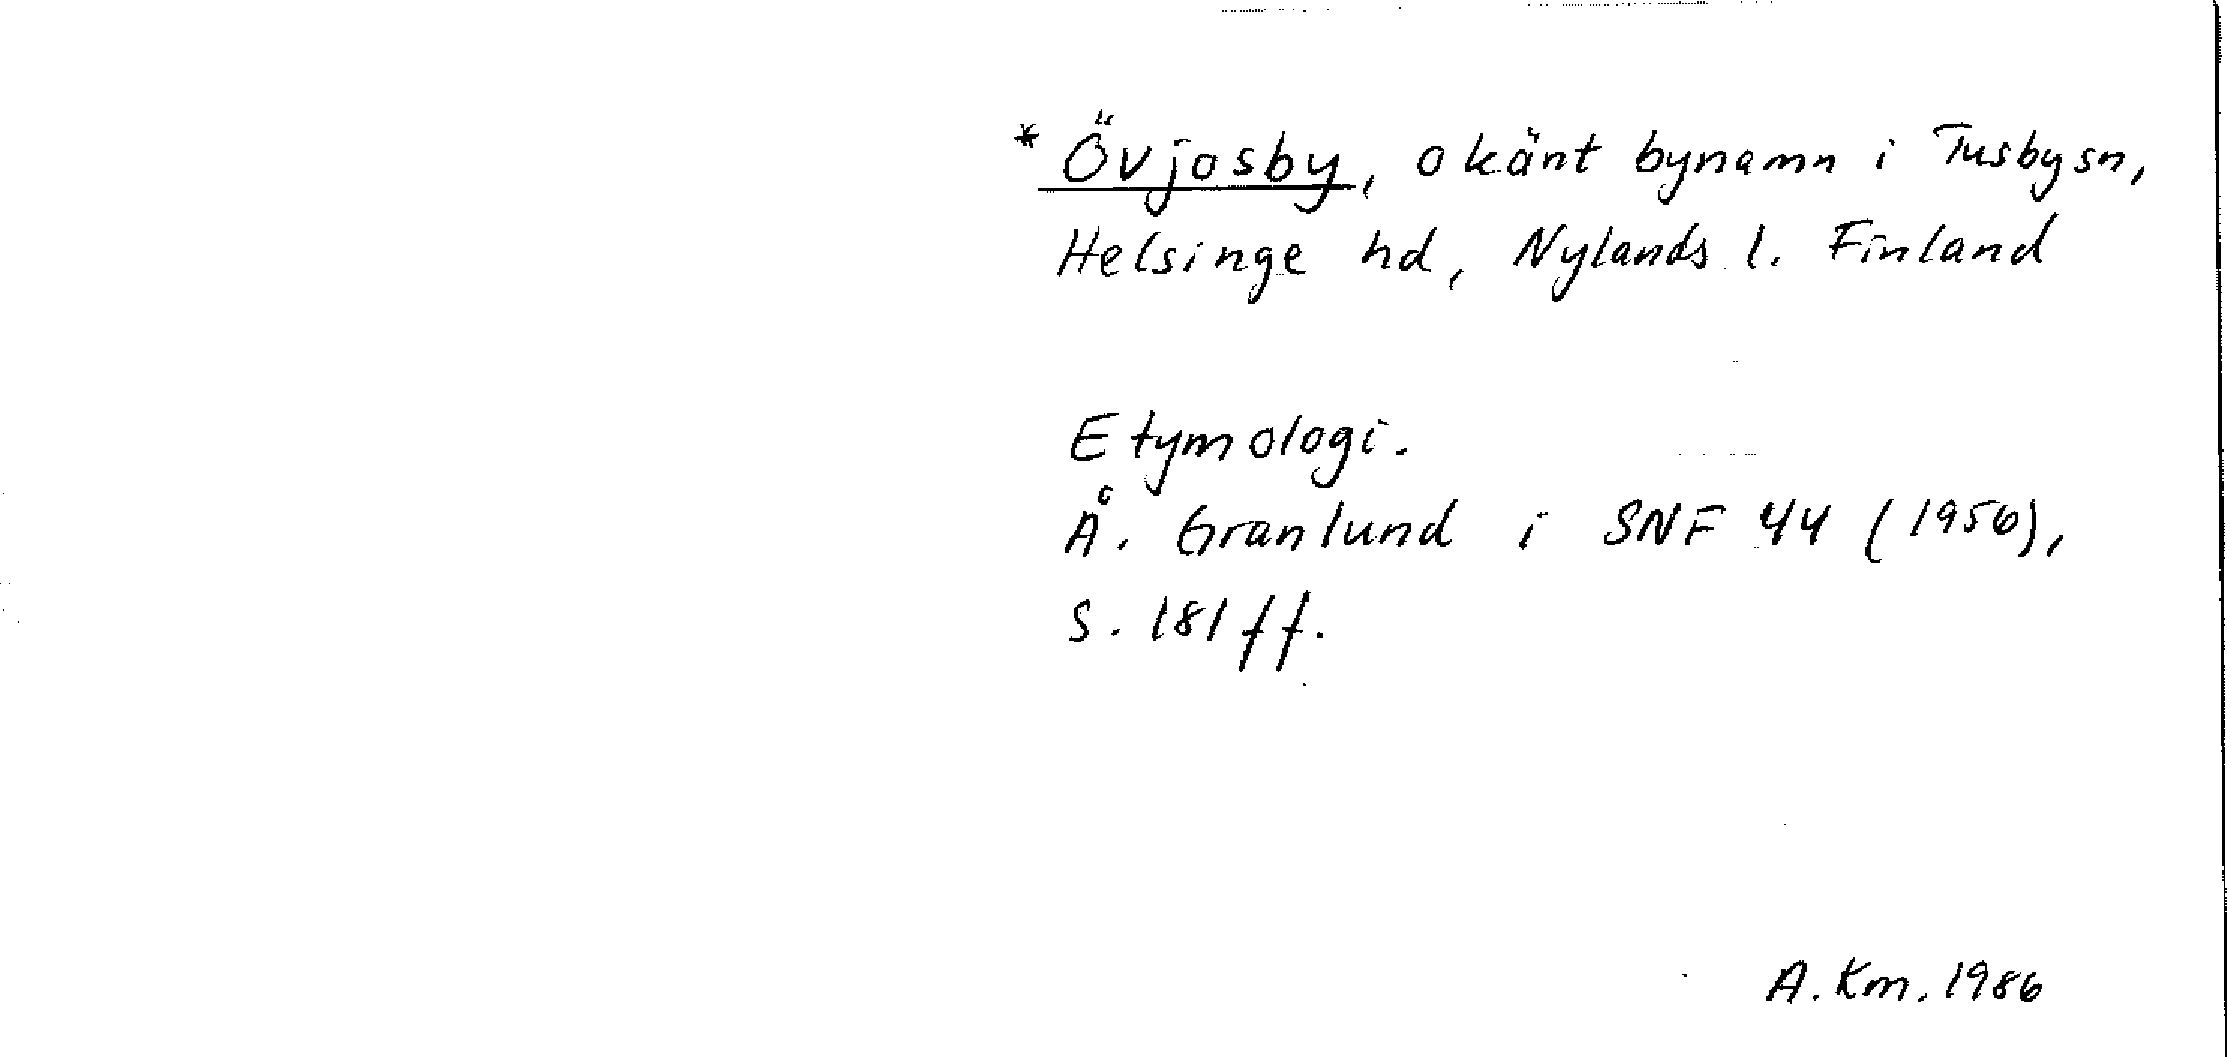 * Övjosby, okänt bynamn i Tusby sn,
Helsinge hd, Nylands l. Finland
Etymologi.
Å. Granlund i SNF 44 (1956),
s. 181 ff.
A. Km. 1986